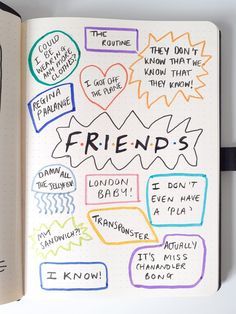 COULD
I BE
WEARING
ANY MORE
CLOTHES?
THE
ROUTINE
THEY DON'T
KNOW THAT WE
KNOW THAT
THEY KNOW!
REGINA
PHALANGE
I GOT OFF
THE PLANE
F.R.I.E.N.D.S
DAMN
ALL THE JELLYFISH!
LONDON
BABY!
I DON'T
EVEN HAVE
A 'PLA'
MY
SANDWICH?!
TRANSPONSTER
I KNOW!
ACTUALLY
IT'S MISS
CHANANDLER
BONG